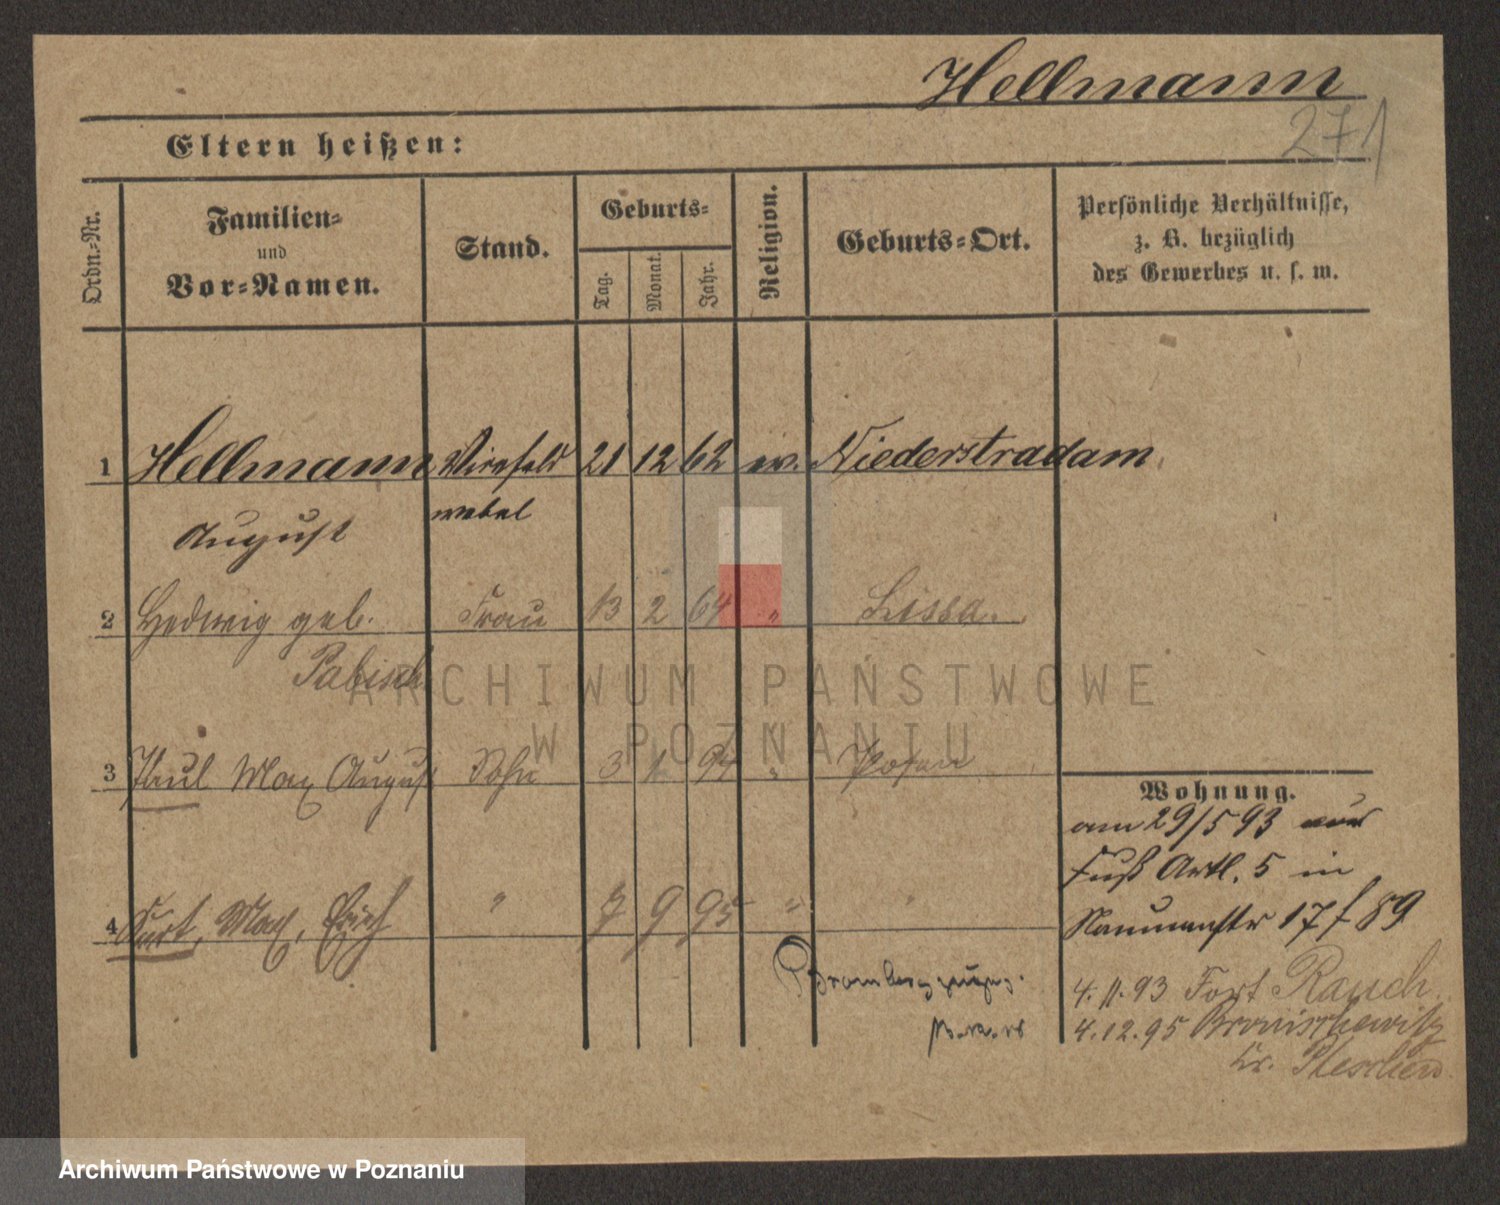 Hellmann
271
Eltern heißen:
Ordn.-Nr.
Familien-
und
Vor-Namen.
Stand.
Geburts-
Tag.
Monat.
Jahr.
Religion.
Geburts-Ort.
Persönliche Verhältnisse,
z. B. bezüglich
des Gewerbes u. s. w.
1 Hellmann Vizefeld 21 12 62 ev. Niederstradam
webel
August
2 Hedwig geb. Frau 13 2 64 " Lissa.
Pabisch
3 Paul Max August Sohn 3 1 94 " Posen
4 Kurt, Max, Erich " 7 9 95 "
Wohnung.
am 29/5 93 von
Fuß Artl. 5 in
Naumannstr 17 f 89
4.11.93 Fort Rauch
4.12.95 Bronischewitz
Kr. Pleschen
ARCHIWUM PAŃSTWOWE
W POZNANIU
Archiwum Państwowe w Poznaniu